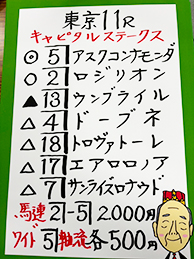 東京11R
キャピタルステークス
◎ 5 アスクコンナモンダ
○ 2 ロジリオン
▲ 13 ウンブライル
△ 4 ドーブネ
△ 18 トロヴァトーレ
△ 17 エアロロノア
△ 7 サンライズロナウド
馬連 2-5 2000円
ワイド 5軸流 各500円